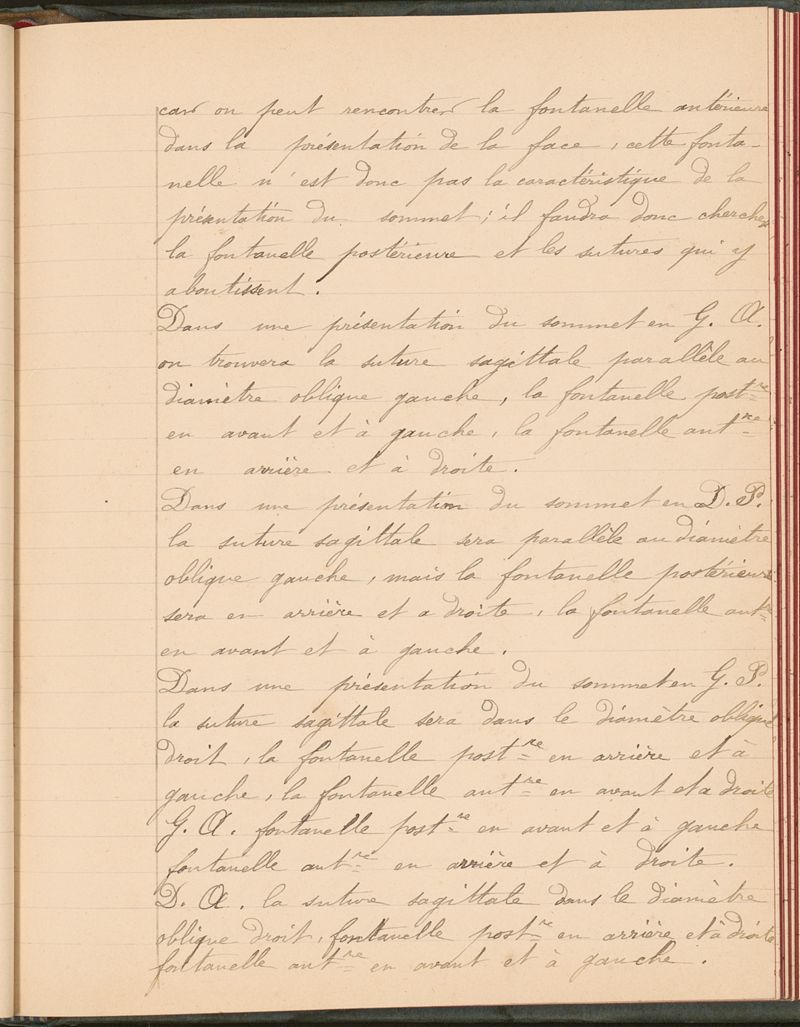 car on peut rencontrer la fontanelle antérieure
dans la présentation de la face, cette fonta-
nelle n'est donc pas la caractéristique de la
présentation du sommet; il faudra donc chercher
la fontanelle postérieure et les sutures qui y
aboutissent.
Dans une présentation du sommet en G. A.
on trouvera la suture sagittale parallèle au
diamètre oblique gauche, la fontanelle post^re
en avant et à gauche, la fontanelle ant^re
en arrière et à droite.
Dans une présentation du sommet en D. P.
la suture sagittale sera parallèle au diamètre
oblique gauche, mais la fontanelle postérieure
sera en arrière et a droite, la fontanelle ant^re
en avant et à gauche.
Dans une présentation du sommet en G. P.
la suture sagittale sera dans le diamètre oblique
droit, la fontanelle post^re en arrière et à
gauche, la fontanelle ant^re en avant et a droite
G. A. fontanelle post^re en avant et à gauche
fontanelle ant^re en arrière et à droite.
D. A. la suture sagittale dans le diamètre
oblique droit, fontanelle post^re en arrière et à droite
fontanelle ant^re en avant et à gauche.